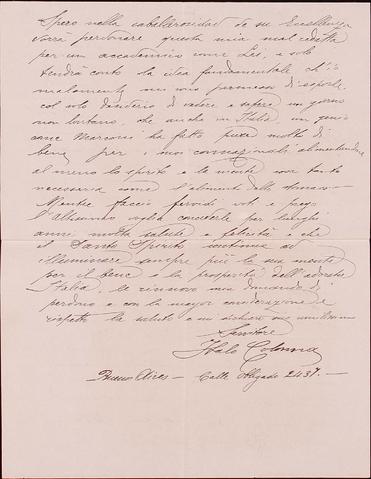 Spero nella cabellerosidad de su Excellenza
vorrà perdonare questa mia mal redatta
per un accademico come Lei, e solo
tendrà conto la idea fundamentale ch'io
malamente mi sono permesso di esporle
col solo desiderio di vedere e sapere un giorno
non lontano, che anche in Italia, un
Marconi ha fatto pure molto di
bene per i miei connazionali alimentandone
al meno lo spirito e la mente
necessaria come l'alimento allo stomaco —
Mentre faccio fervidi voti e prego
l'Altissimo voglia concederle per lunghi
anni molta salute e felicità e che
il Santo Spirito continua ad
illuminare sempre più la sua mente
per il bene e la prosperità dell'adorata
Italia, le rinnovo mia domanda di
perdono e con la mayor considerazione e
rispetto la saluto e mi
Servitore
Italo Colonna
Buenos Aires — Calle 2437. —